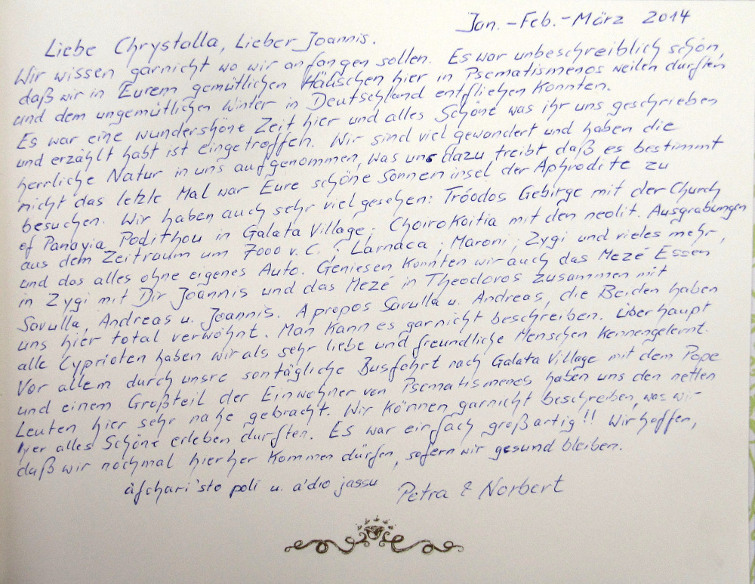 Jan.-Feb.-März 2014
Liebe Chrystalla, Lieber Joannis.
Wir wissen garnicht wo wir anfangen sollen. Es war unbeschreiblich schön,
daß wir in Eurem gemütlichen Häuschen hier in Psematismenos weilen durften
und dem ungemütlichen Winter in Deutschland entfliehen konnten.
Es war eine wundershöne Zeit hier und alles Schöne was ihr uns geschrieben
und erzählt habt ist eingetroffen. Wir sind viel gewandert und haben die
herrliche Natur in uns aufgenommen, was uns dazu treibt daß es bestimmt
nicht das letzte Mal war Eure schöne Sonneninsel der Aphrodite zu
besuchen. Wir haben auch sehr viel gesehen: Tróodos Gebirge mit der Church
of Panayia Podithou in Galata Village; Choirokoitia mit den neolit. Ausgrabungen
aus dem Zeitraum um 7000 v. C.; Larnaca; Maroni; Zygi und vieles mehr,
und das alles ohne eigenes Auto. Geniesen konnten wir auch das Mezé Essen
in Zygi mit Dir Joannis und das Mezé in Theodoros zusammen mit
Savulla, Andreas u. Joannis. Apropos Savulla u. Andreas, die Beiden haben
uns hier total verwöhnt. Man kann es garnicht beschreiben. Überhaupt
alle Cyprioten haben wir als sehr liebe und freundliche Menschen kennengelernt.
Vor allem durch unsre sontägliche Busfahrt nach Galata Village mit dem Pope
und einem Großteil der Einwohner von Psematismenos haben uns den netten
Leuten hier sehr nahe gebracht. Wir können garnicht beschreiben, was wir
hier alles Schöne erleben durften. Es war einfach großartig!! Wir hoffen,
daß wir nochmal hierher kommen dürfen, sofern wir gesund bleiben.
áfchari'sto poli u. a'dio jassu Petra & Norbert